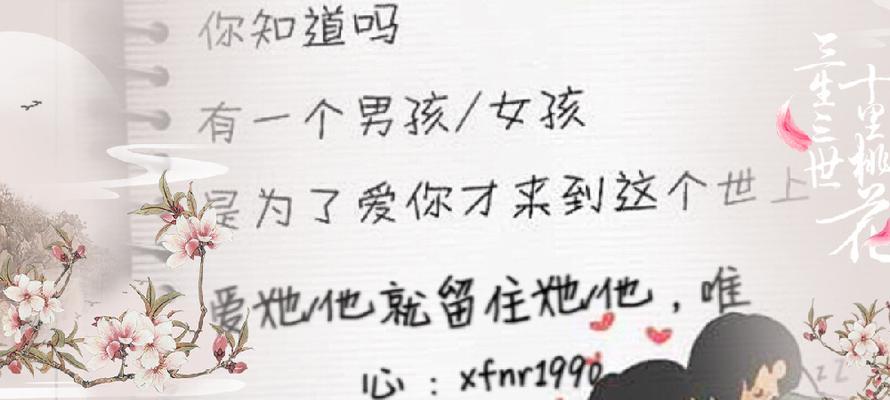 你知道吗
有一个男孩/女孩
是为了爱你才来到这个世上
爱她/他就留住她/他，唯
心：xfnr1990
三生三世
十里桃花